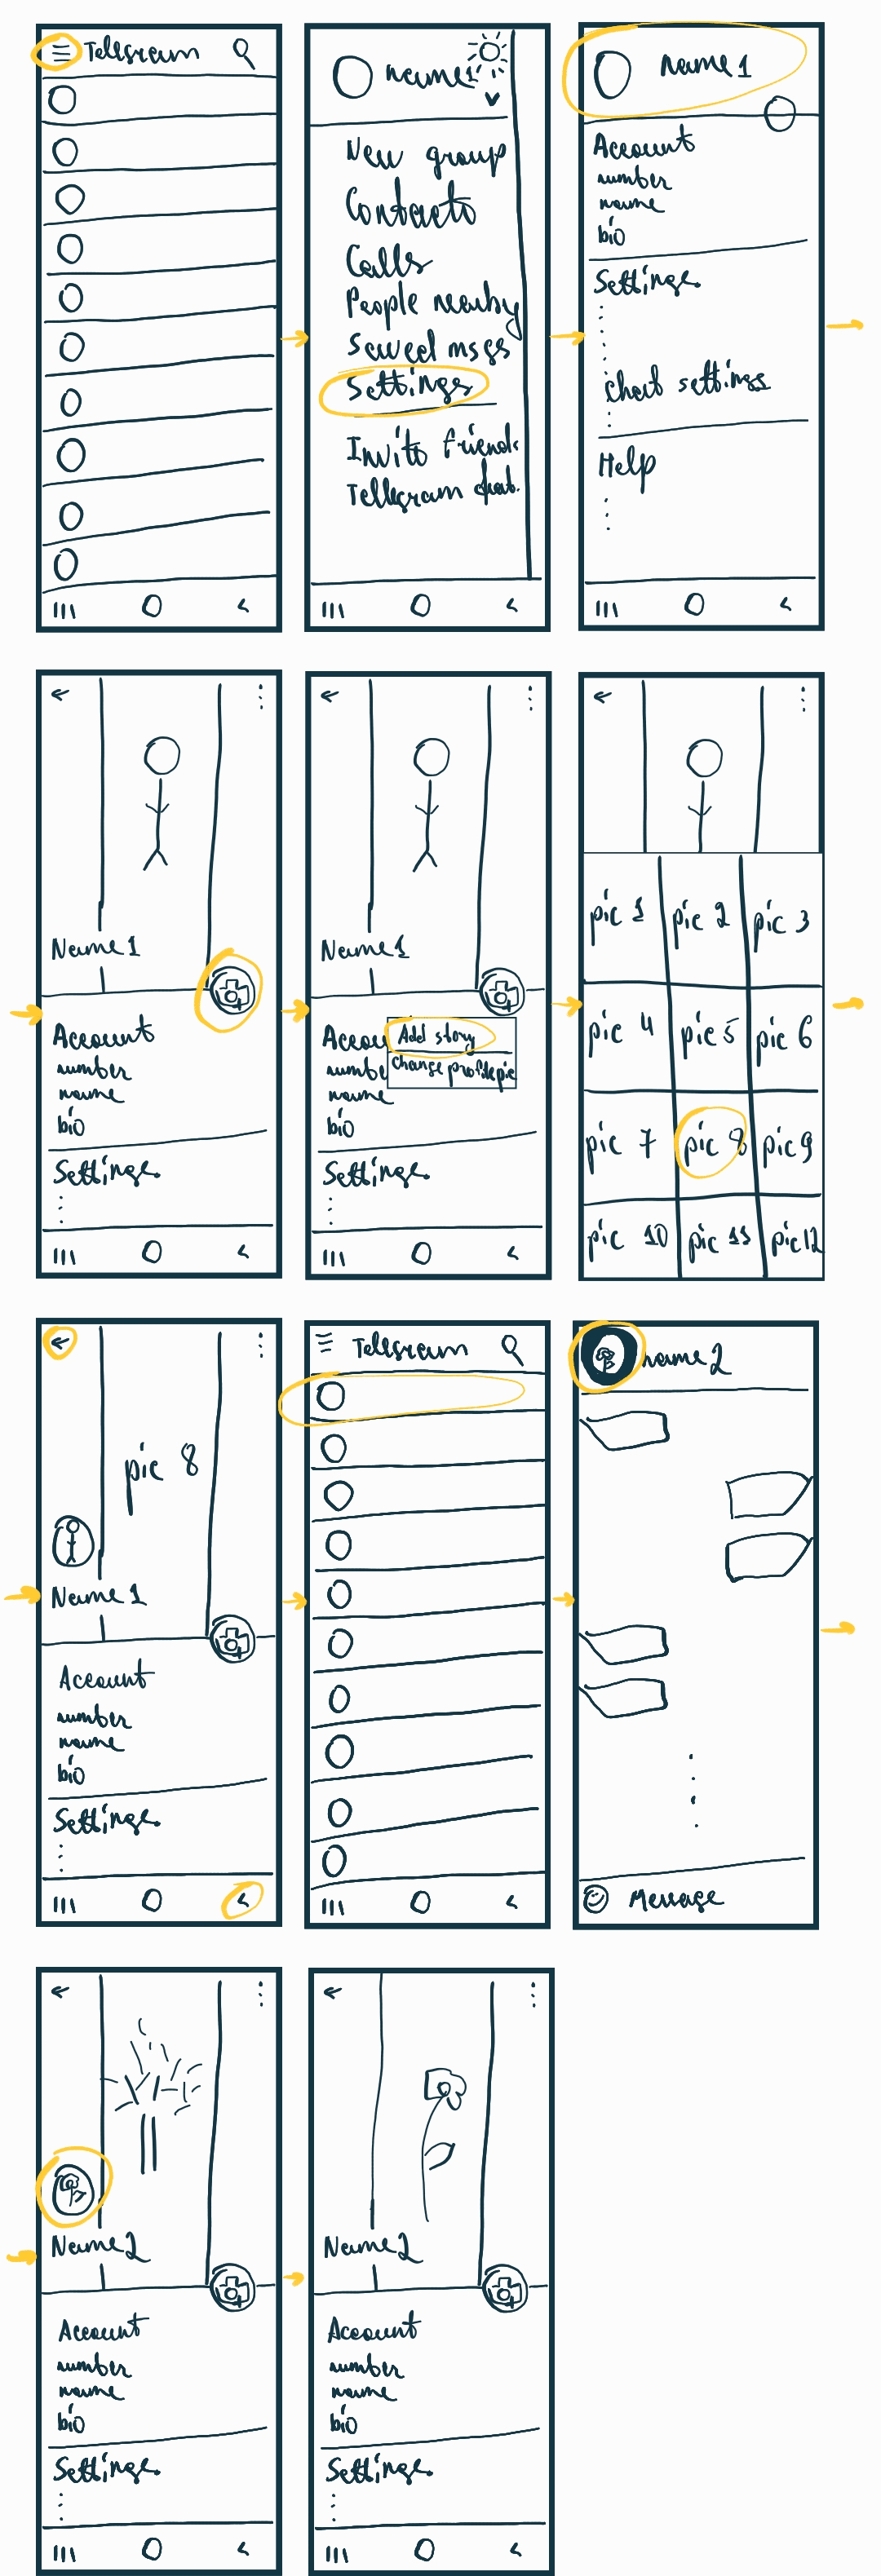 Telegram
Name1
New group
Contacts
Calls
People nearby
Saved msgs
Settings
Invite friends
Tellegram chat.
Name 1
Account
number
name
bio
Settings
chat settings
Help
Name1
Account
number
name
bio
Settings
Name1
Accou
Add story
numbe
change profilepic
name
bio
Settings
pic 1
pic 2
pic 3
pic 4
pic 5
pic 6
pic 7
pic 8
pic 9
pic 10
pic 11
pic 12
pic 8
Name1
Account
number
name
bio
Settings
Telegram
name 2
Message
Name2
Account
number
name
bio
Settings
Name2
Account
number
name
bio
Settings